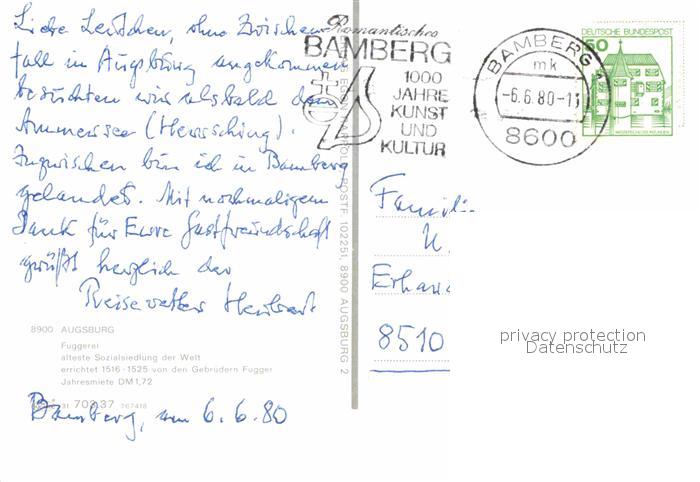 Liebe Leutchen, ohne Zwischen-
fall in Augsburg angekommen
besuchten wir alsbald den
Ammersee (Herrsching).
Inzwischen bin ich in Bamberg
gelandet. Mit nochmaligem
Dank für Eure Gastfreundschaft
grüßt herzlich der
Reisevetter Herbert
8900 AUGSBURG
Fuggerei
älteste Sozialsiedlung der Welt
errichtet 1516-1525 von den Gebrüdern Fugger
Jahresmiete DM 1,72
31 703 37 767418
Bamberg, am 6.6.80
POSTF. 102251, 8900 AUGSBURG 2
Romantisches
BAMBERG
1000
JAHRE
KUNST
UND
KULTUR
BAMBERG
mk
-6.6.80-1
8600
DEUTSCHE BUNDESPOST
50
Famili
Erhar
8510
privacy protection
Datenschutz